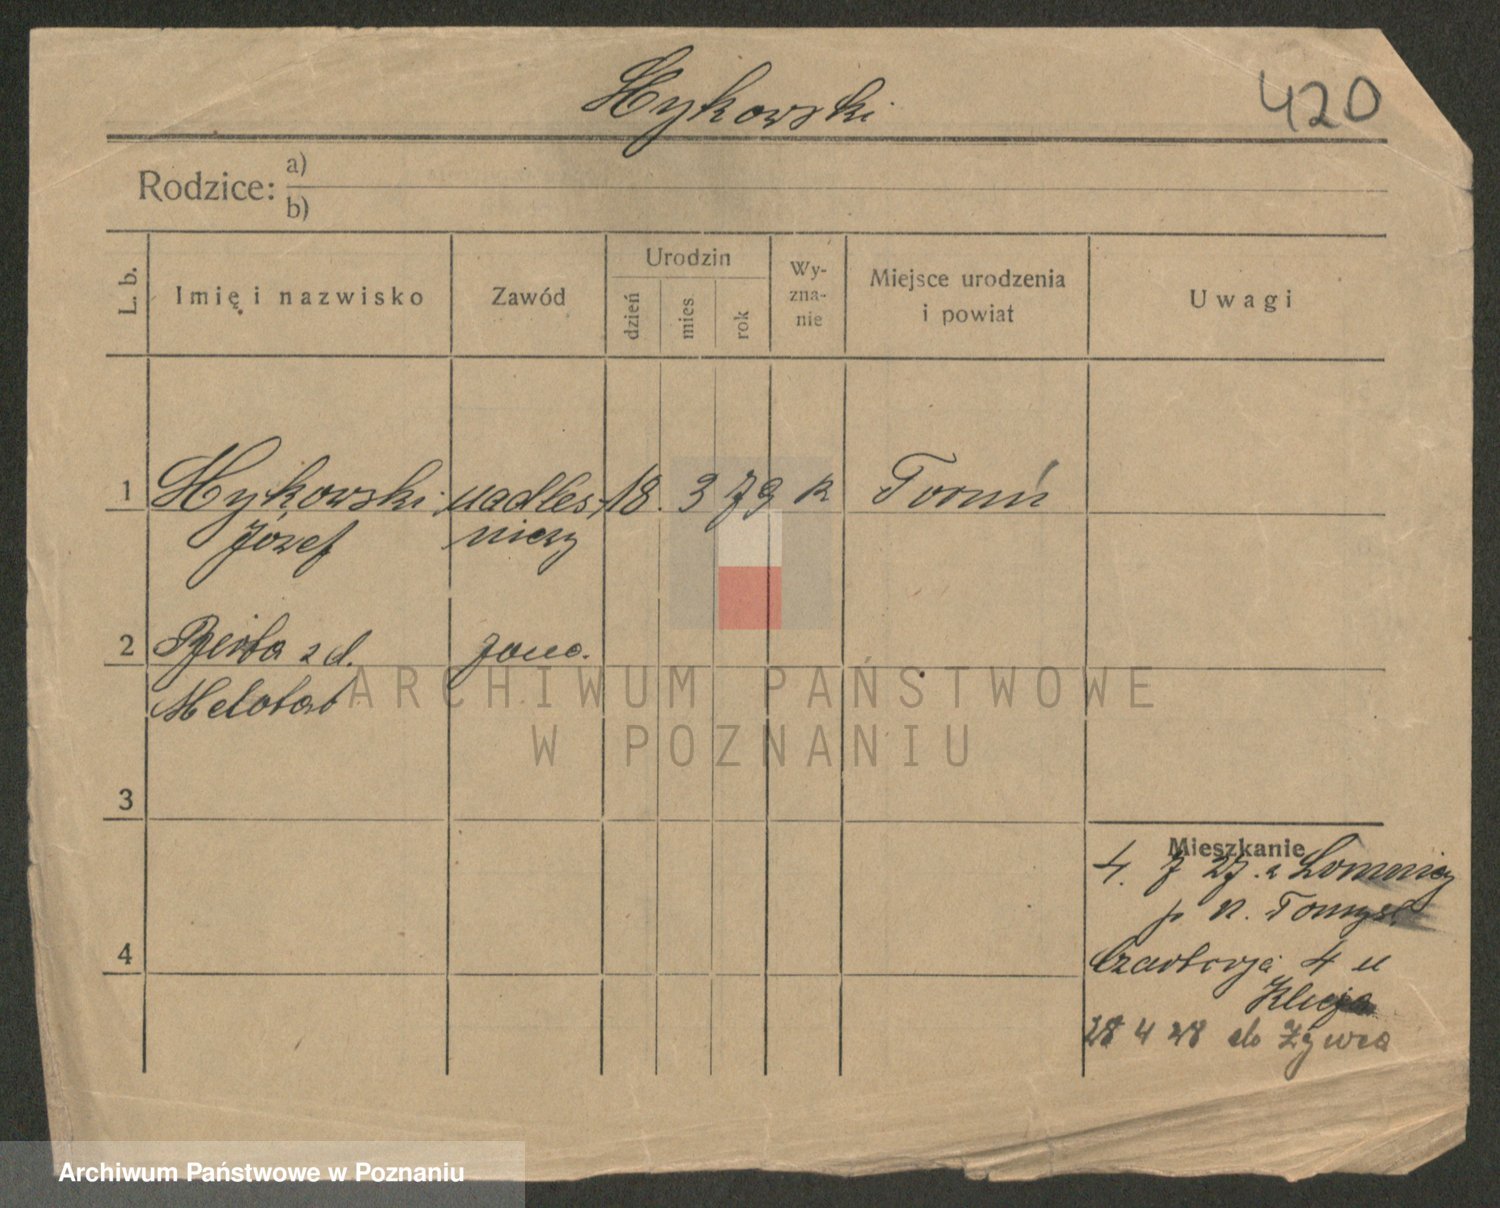 Hykowski
420
Rodzice: a)
b)
L. b.
Imię i nazwisko
Zawód
Urodzin
dzień
mies
rok
Wy-
zna-
nie
Miejsce urodzenia
i powiat
Uwagi
1 Hykowski nadleś- 18. 3 79 k Toruń
Józef niczy
2 Berta z d. żona.
3
4
Mieszkanie
4. 7 27. z Łomnicy
p. N. Tomyśl
4 u
28 4 28 do Żywca
ARCHIWUM PAŃSTWOWE
W POZNANIU
Archiwum Państwowe w Poznaniu